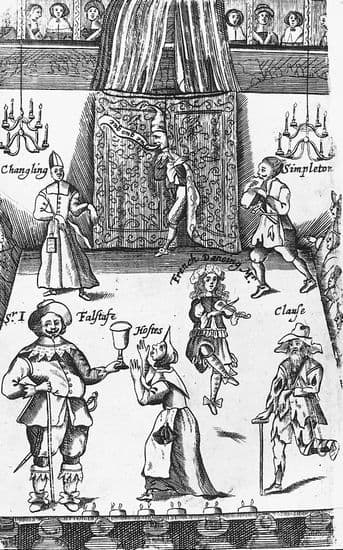 Tu quoque
Changling
Simpleton
French Dancing Mr
Sr I Falstafe
Hostes
Clause